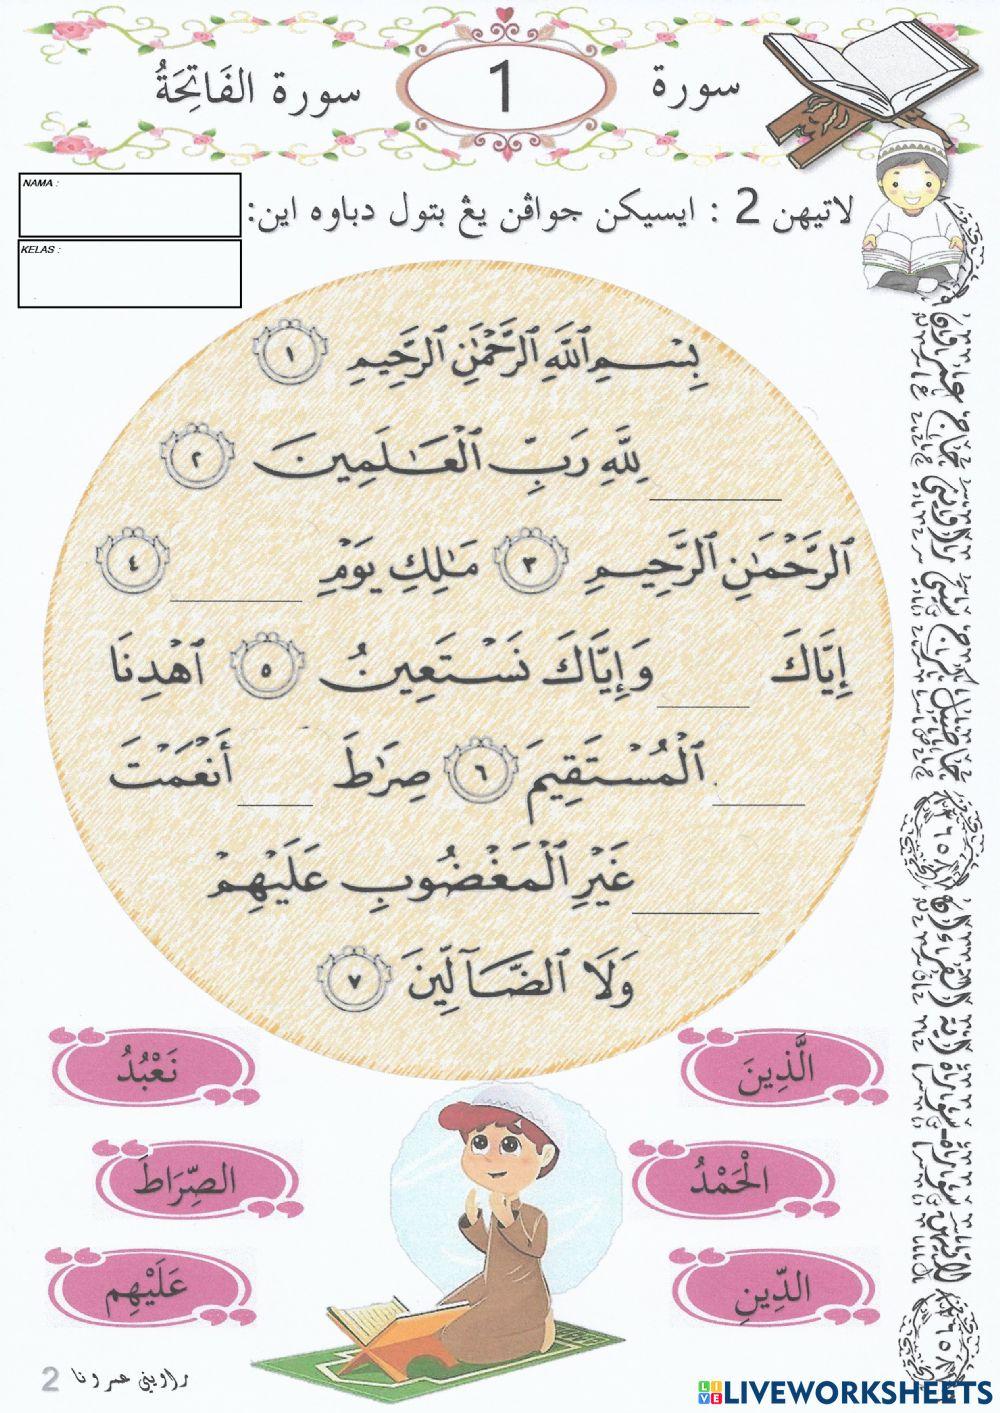 سورة 1 سورة الفَاتِحَةُ
NAMA :
KELAS :
لاتيهن 2 : ايسيكن جواڤن يڠ بتول دباوه اين:
بِسْمِ ٱللَّهِ ٱلرَّحْمَٰنِ ٱلرَّحِيمِ ١
_______ لِلَّهِ رَبِّ ٱلْعَٰلَمِينَ ٢
ٱلرَّحْمَٰنِ ٱلرَّحِيمِ ٣ مَٰلِكِ يَوْمِ _______ ٤
إِيَّاكَ _____ وَإِيَّاكَ نَسْتَعِينُ ٥ ٱهْدِنَا
_____ ٱلْمُسْتَقِيمَ ٦ صِرَٰطَ ____ أَنْعَمْتَ
_______ غَيْرِ ٱلْمَغْضُوبِ عَلَيْهِمْ
وَلَا ٱلضَّآلِّينَ ٧
الَّذِينَ
نَعْبُدُ
الْحَمْدُ
الصِّرَاطَ
الدِّينِ
عَلَيْهِم
2
LIVEWORKSHEETS